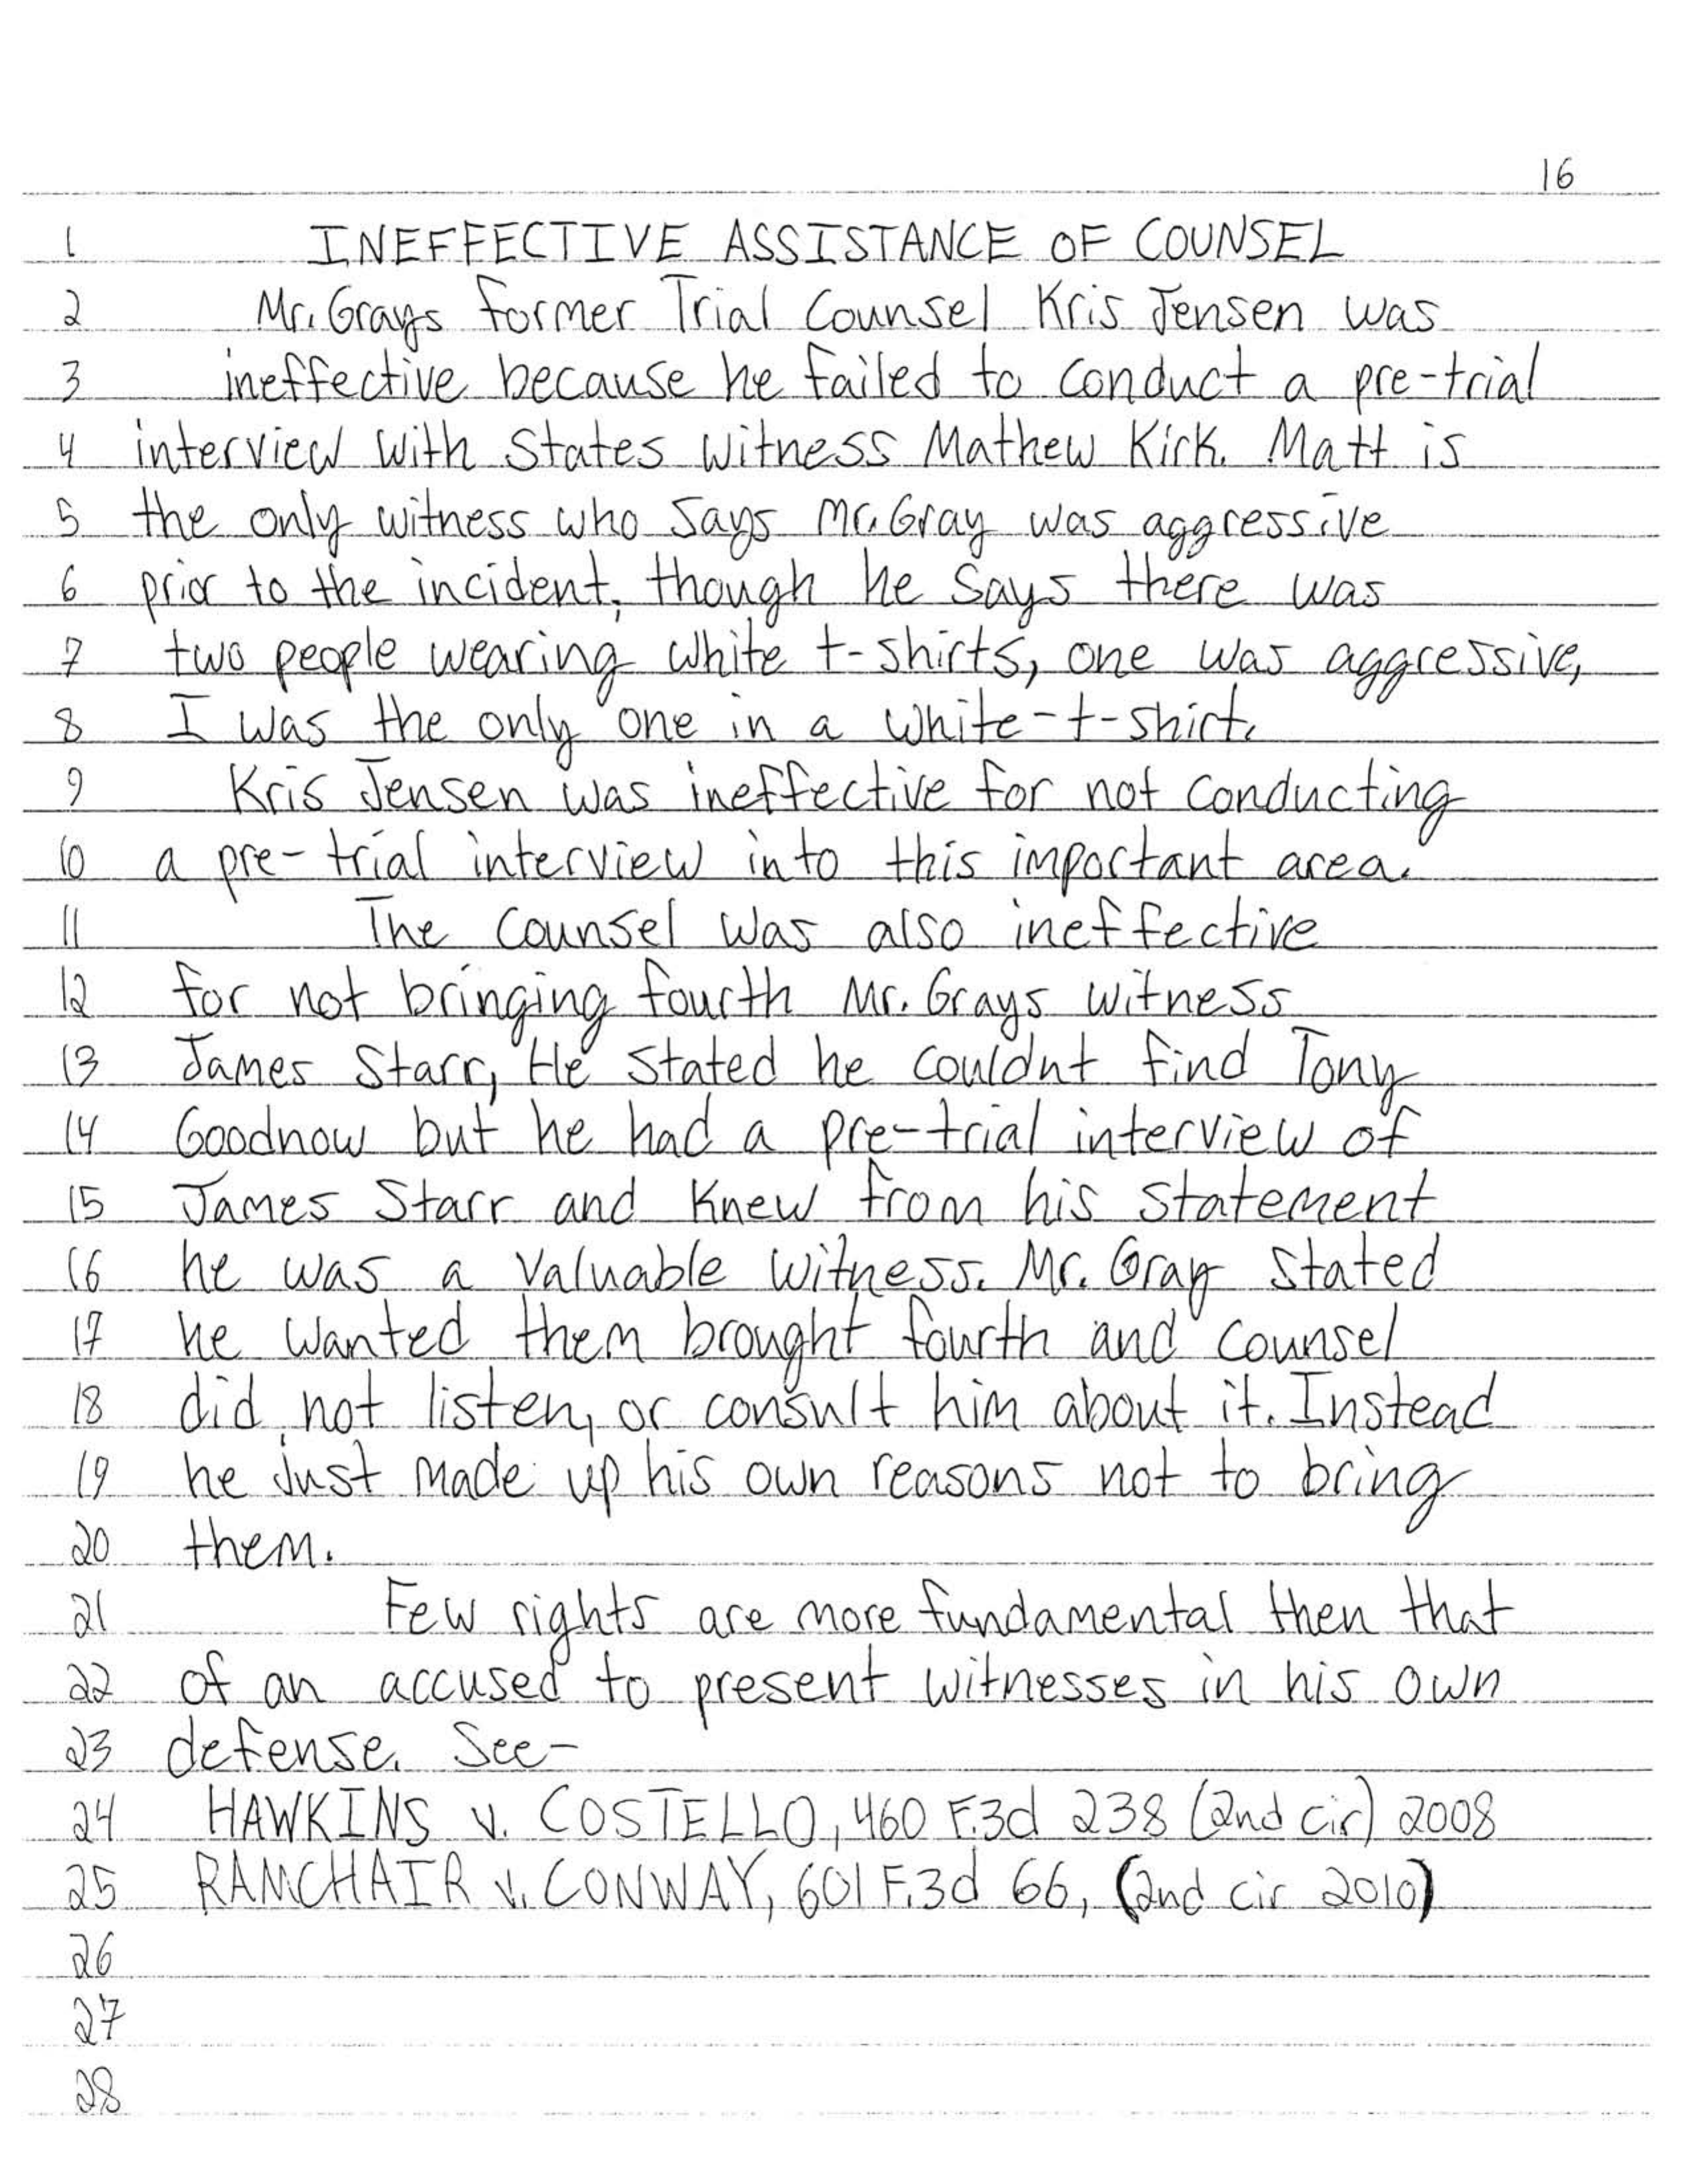 16
1 INEFFECTIVE ASSISTANCE OF COUNSEL
2 Mr. Grays former Trial Counsel Kris Jensen was
3 ineffective because he failed to conduct a pre-trial
4 interview with States witness Mathew Kirk. Matt is
5 the only witness who says Mr. Gray was aggressive
6 prior to the incident, though he says there was
7 two people wearing white t-shirts, one was aggressive,
8 I was the only one in a white-t-shirt.
9 Kris Jensen was ineffective for not conducting
10 a pre-trial interview into this important area.
11 The counsel was also ineffective
12 for not bringing fourth Mr. Grays witness
13 James Starr, He stated he couldnt find Tony
14 Goodnow but he had a pre-trial interview of
15 James Starr and knew from his statement
16 he was a valuable witness. Mr. Gray stated
17 he wanted them brought fourth and counsel
18 did not listen, or consult him about it. Instead
19 he Just made up his own reasons not to bring
20 them.
21 Few rights are more fundamental then that
22 of an accused to present witnesses in his own
23 defense. See-
24 HAWKINS v. COSTELLO, 460 F.3d 238 (2nd cir) 2008
25 RAMCHAIR v. CONWAY, 601 F.3d 66, (2nd cir 2010)
26
27
28